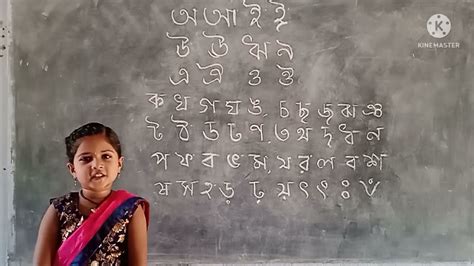 অ আ ই ঈ
KINEMASTER
উ ঊ ঋ
এ ঐ ও ঔ
ক খ গ ঘ ঙ, চ ছ জ ঝ ঞ
ট ঠ ড ঢ ণ, ত থ দ ধ ন
প ফ ব ভ ম, য র ল ব শ
ষ স হ ড় ঢ় য় ৎ ং ঃ ঁ